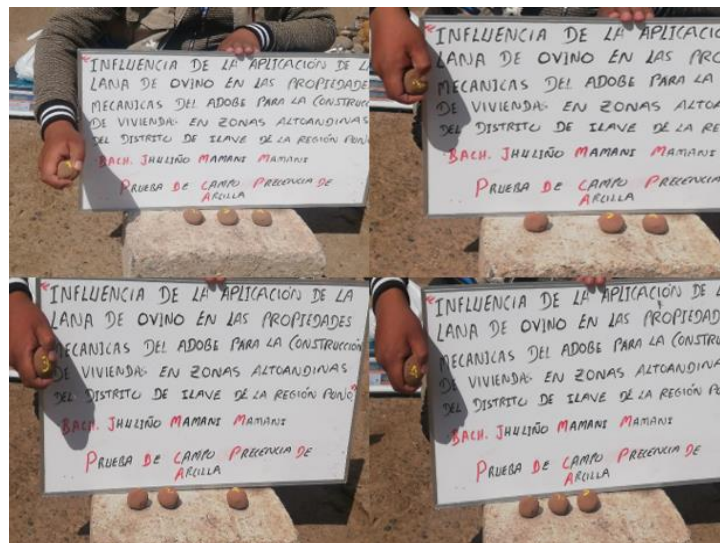 "INFLUENCIA DE LA APLICACIÓN DE LA
LANA DE OVINO EN LAS PROPIEDADES
MECANICAS DEL ADOBE PARA LA CONSTRUCC
DE VIVIENDAS EN ZONAS ALTOANDINAS
DEL DISTRITO DE ILAVE DE LA REGIÓN PUNO
BACH. JHULIÑO MAMANI MAMANI
PRUEBA DE CAMPO PRECENCIA DE
ARCILLA
"INFLUENCIA DE LA APLICACIÓN
LANA DE OVINO EN LAS PRO
MECANICAS DEL ADOBE PARA LA
DE VIVIENDAS EN ZONAS ALTOA
DEL DISTRITO DE ILAVE DE LA RE
BACH. JHULIÑO MAMANI MAMANI
PRUEBA DE CAMPO PRECENCIA
ARCILLA
"INFLUENCIA DE LA APLICACIÓN DE LA
LANA DE OVINO EN LAS PROPIEDADES
MECANICAS DEL ADOBE PARA LA CONSTRUCCIÓN
DE VIVIENDAS EN ZONAS ALTOANDINAS
DEL DISTRITO DE ILAVE DE LA REGIÓN PUNO"
BACH. JHULIÑO MAMANI MAMANI
PRUEBA DE CAMPO PRECENCIA DE
ARCILLA
3
"INFLUENCIA DE LA APLICACIÓN DE L
LANA DE OVINO EN LAS PROPIEDAD
MECANICAS DEL ADOBE PARA LA CONSTRU
DE VIVIENDAS EN ZONAS ALTOANDINA
DEL DISTRITO DE ILAVE DE LA REGIÓN PU
BACH. JHULIÑO MAMANI MAMANI
PRUEBA DE CAMPO PRECENCIA DE
ARCILLA
4